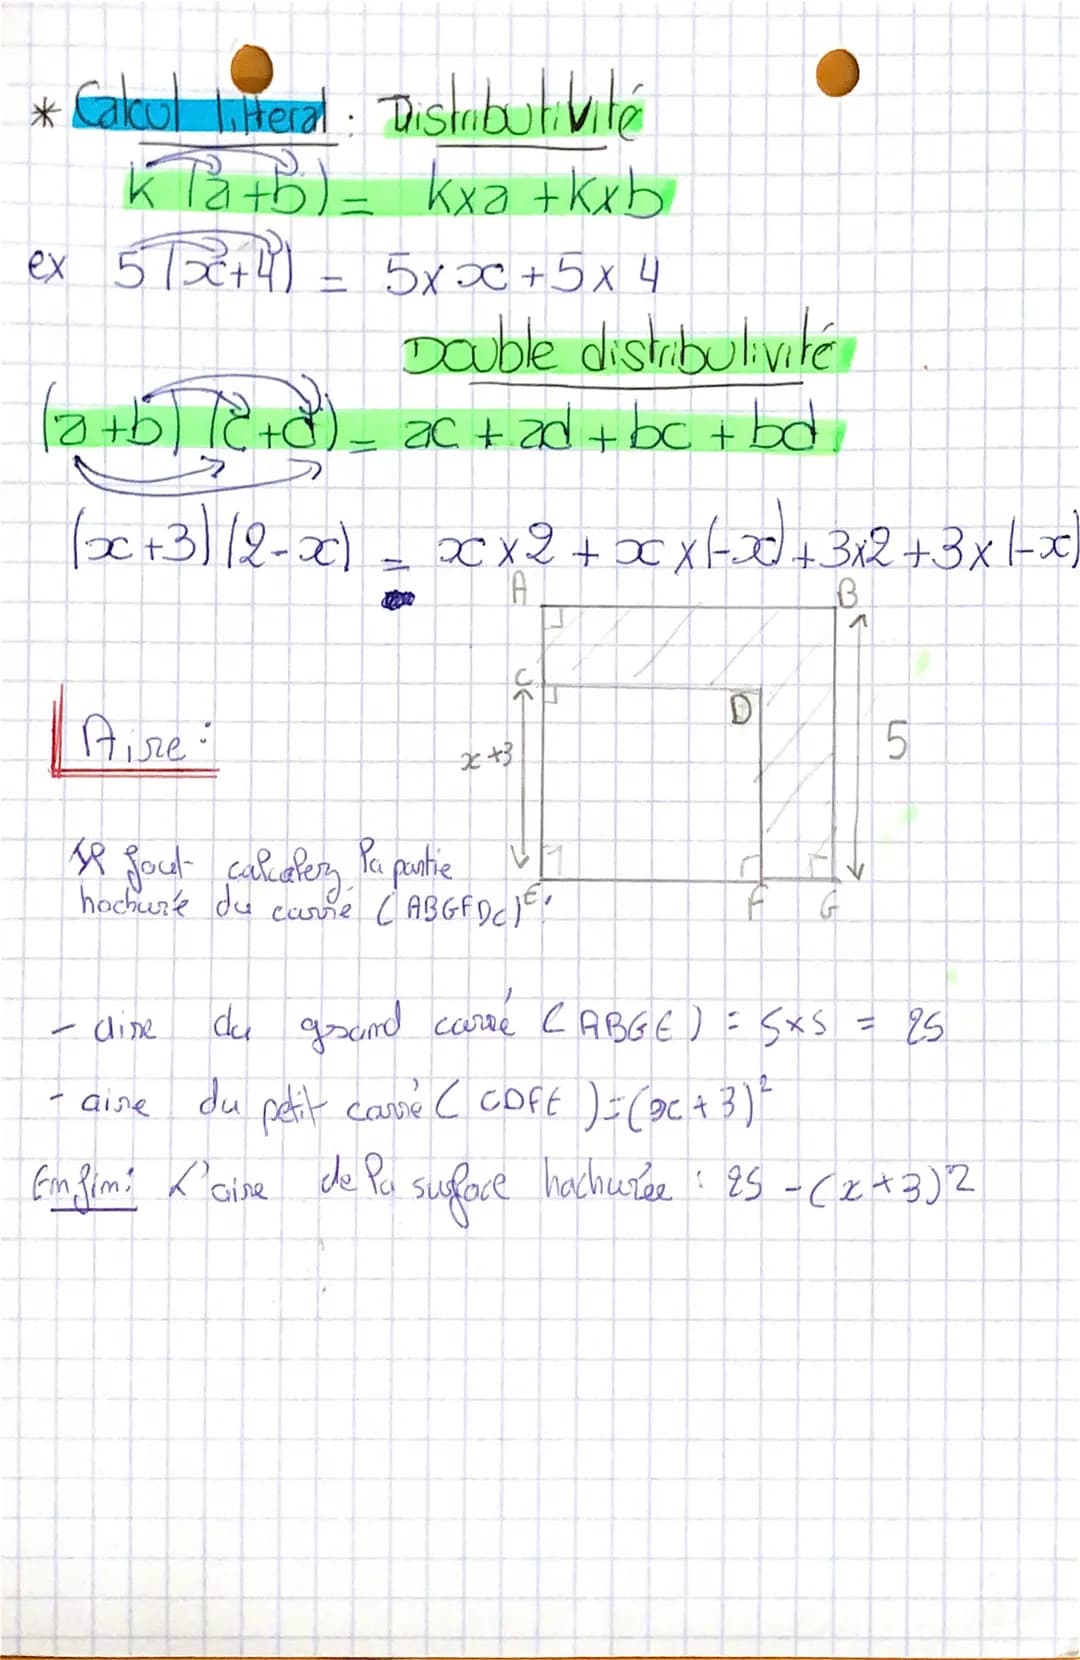 * Calcul litteral : Distributivité
k (a+b) = k×a + k×b
ex 5 (x+4) = 5×x + 5×4
Double distributivité
(a+b) (c+d) = ac + ad + bc + bd
(x+3) (2-x) = x×2 + x×(-x) + 3×2 + 3×(-x)
A B
C D
Aire :
x+3 5
Il faut calculer la partie
hachurée du carré (ABGFDC) :
E F G
- aire du grand carré (ABGE) = 5×5 = 25
- aire du petit carré (CDFE) = (x+3)²
Enfin : L'aire de la surface hachurée : 25 - (x+3)2